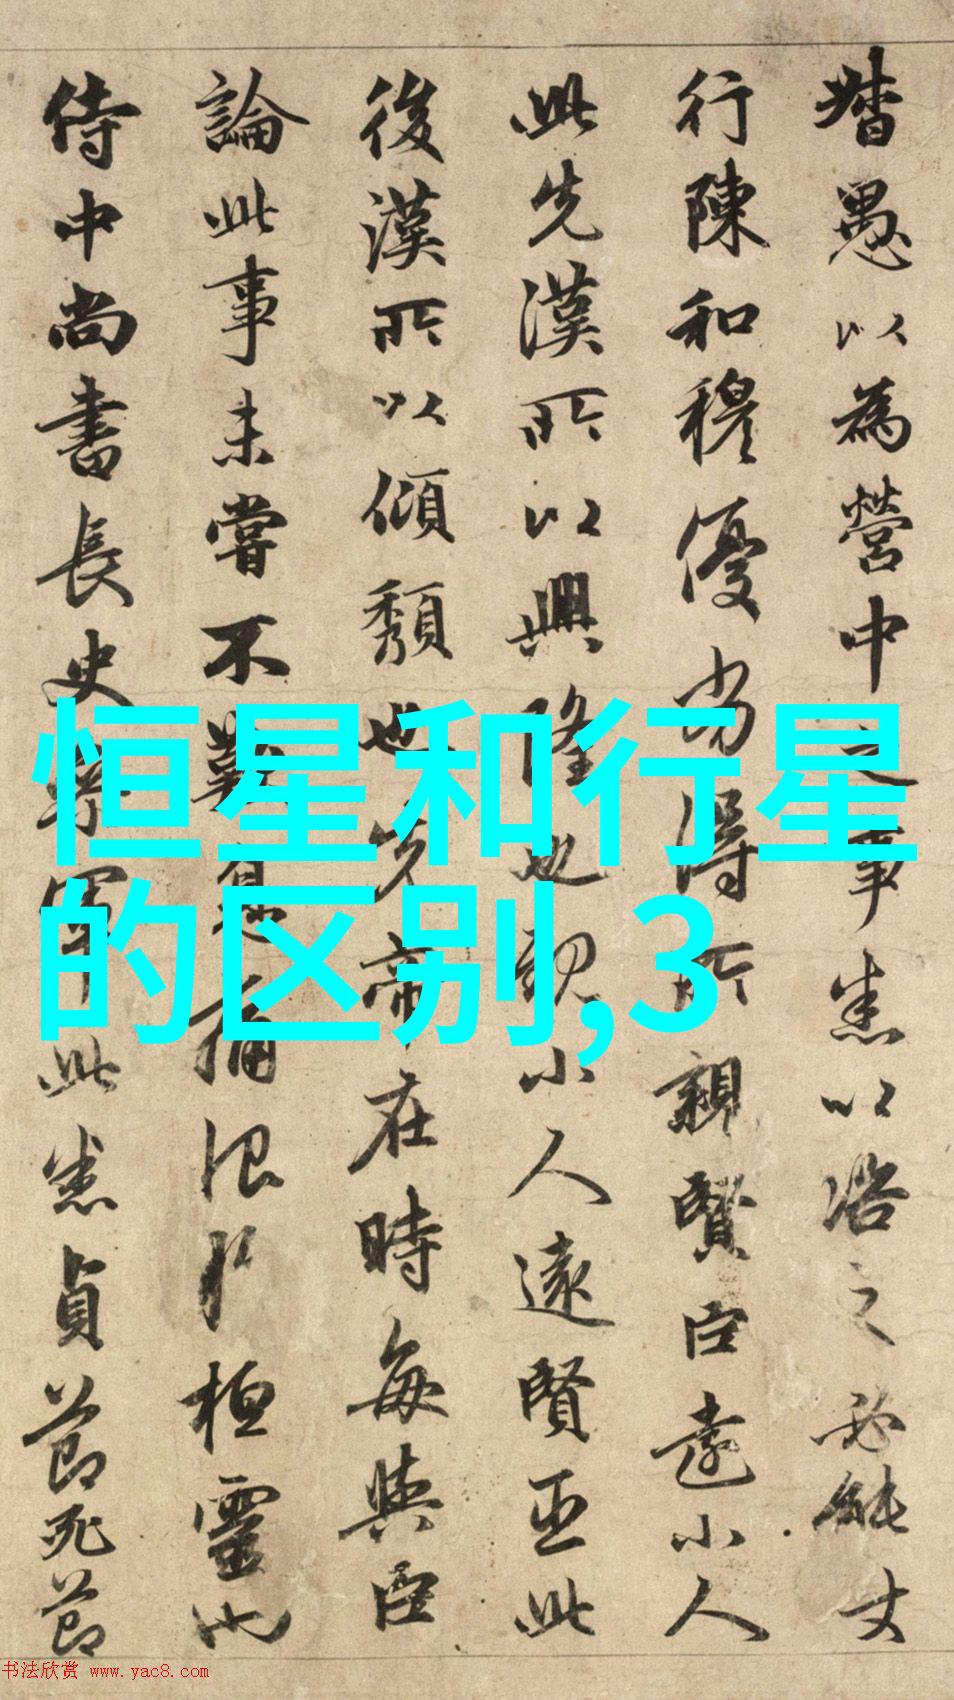 督愚以為營中之事悉以咨之必能丈
行陳和穆優劣得所親賢臣遠小人
此先漢所以興隆也親小人遠賢臣此
後漢所以傾頹也先帝在時每與臣
論此事未嘗不歎息痛恨於桓靈也
侍中尚書長史參軍此悉貞節死節
恒星和行星
的区别,3
书法欣赏 www.yac8.com